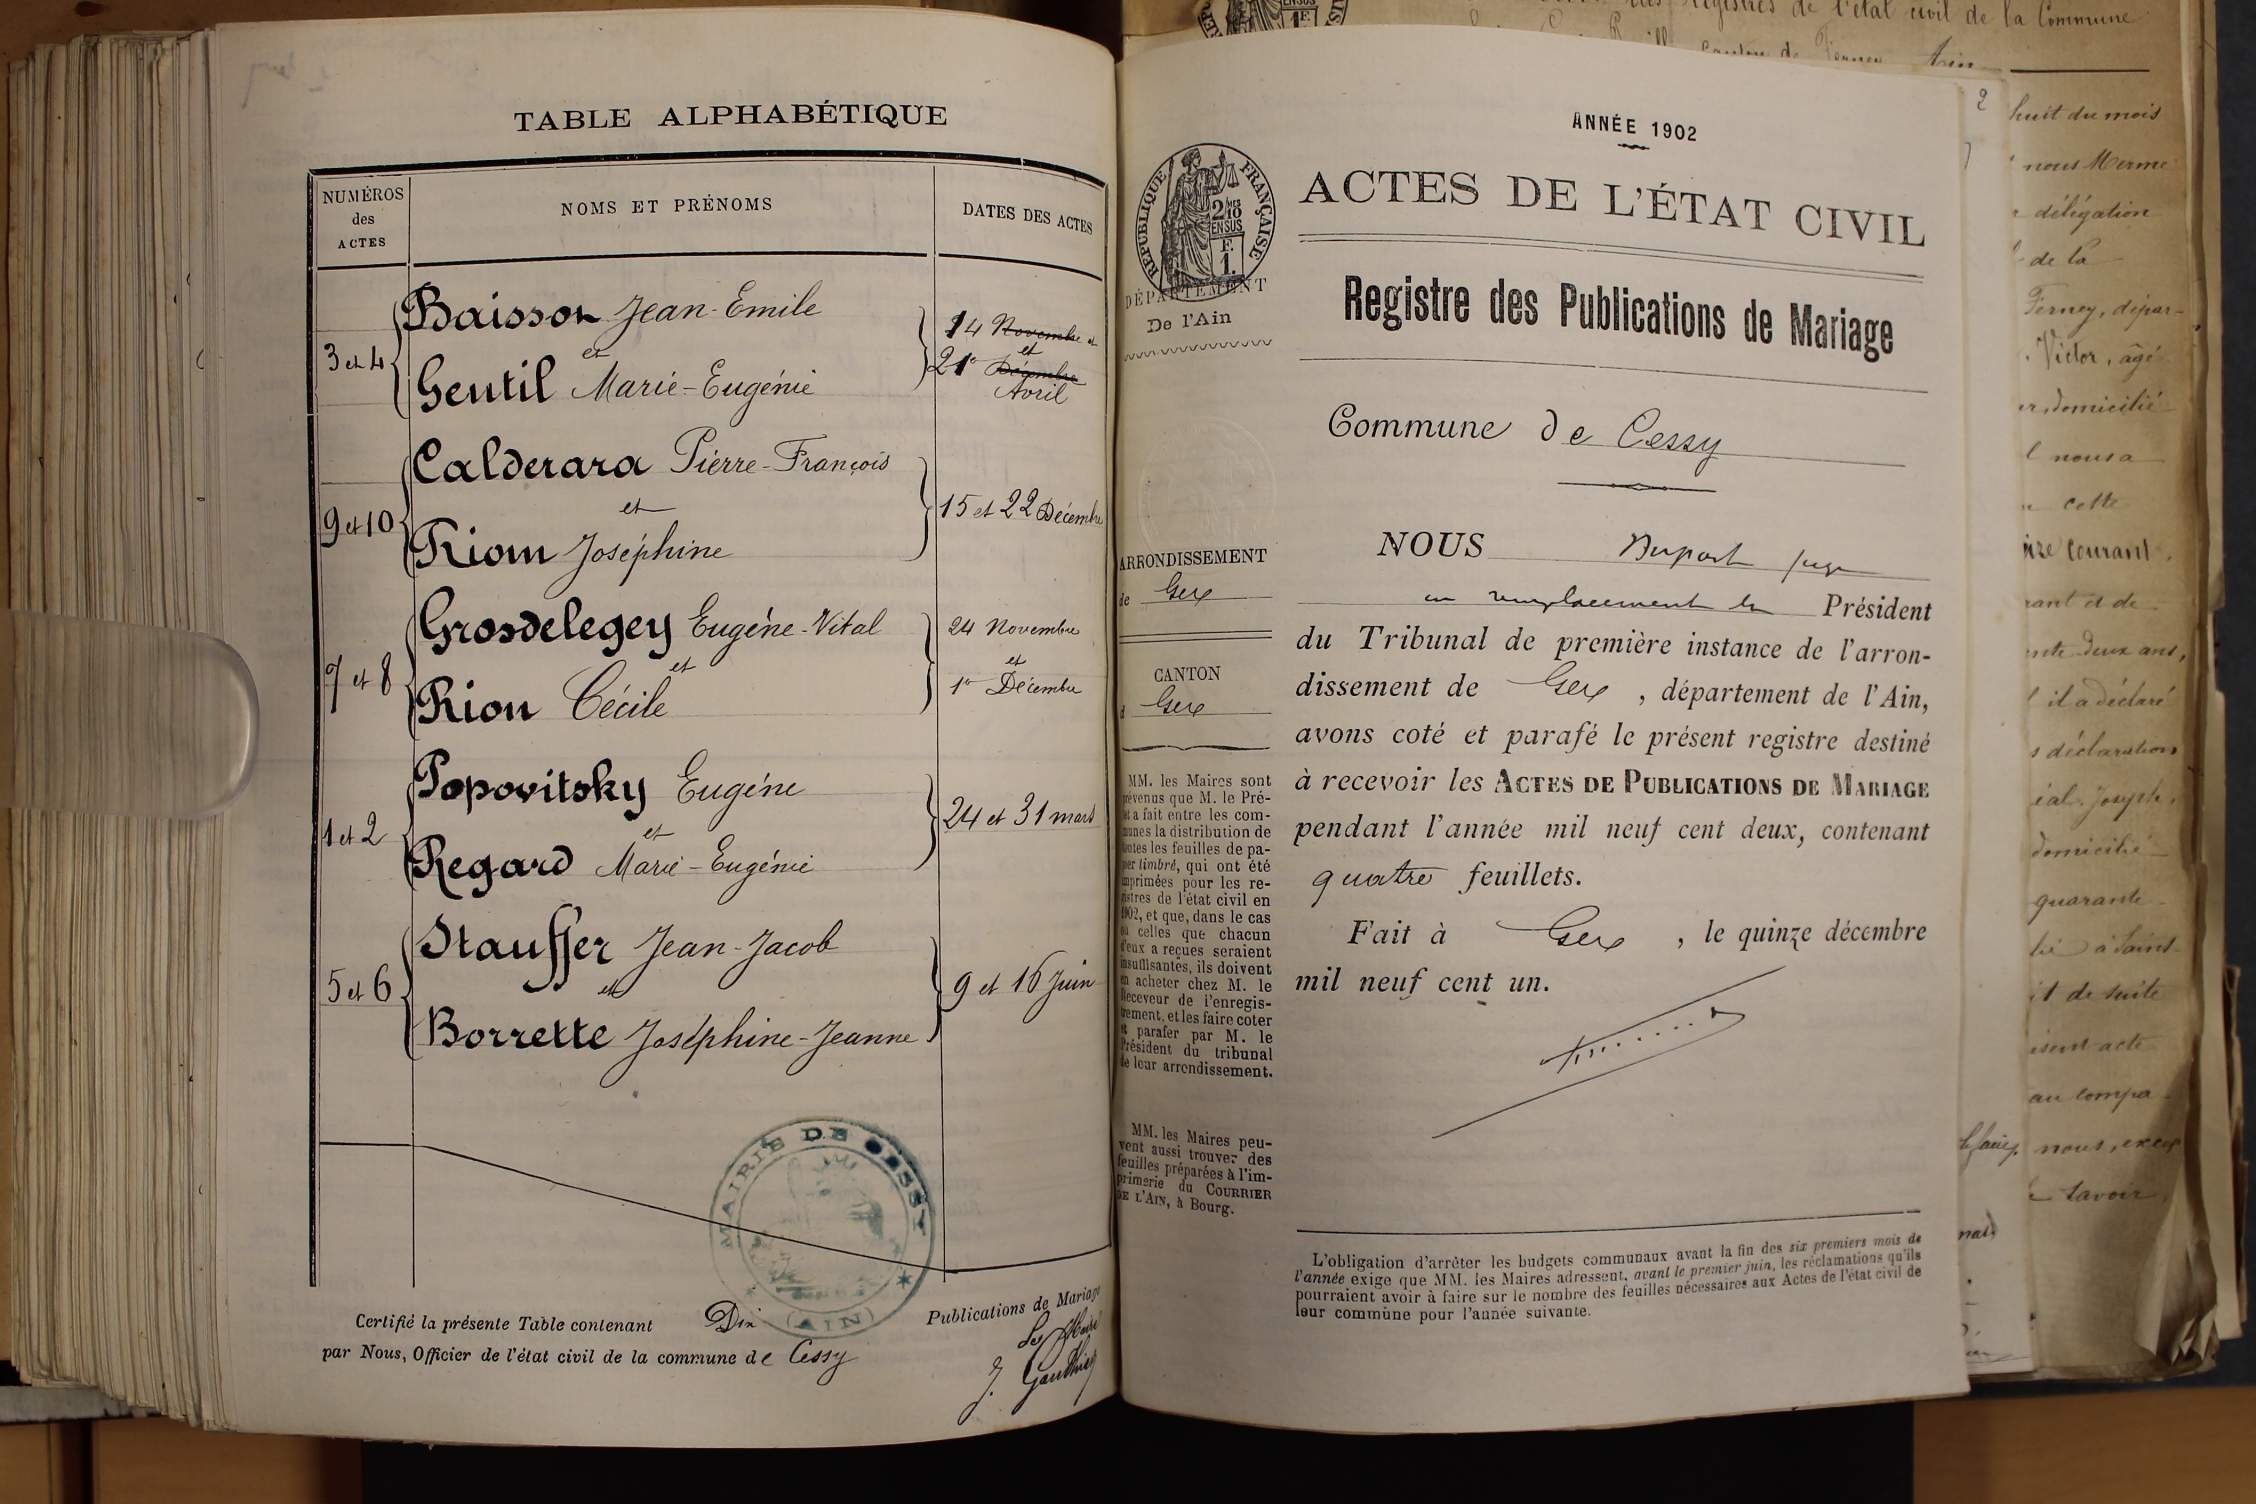 TABLE ALPHABÉTIQUE
NUMÉROS
des
ACTES
NOMS ET PRÉNOMS
DATES DES ACTES
Baisson Jean-Emile
et
3 et 4
Gentil Marie-Eugénie
14 Novembre et
et
21 Décembre
Avril
Calderara Pierre-François
et
9 et 10
Riom Joséphine
15 et 22 Décembre
Grosdelegey Eugène-Vital
et
7 et 8
Rion Cécile
24 Novembre
et
1er Décembre
Popovitsky Eugène
et
1 et 2
Regard Marie-Eugénie
24 et 31 mars
Stauffer Jean-Jacob
et
5 et 6
Borrette Joséphine-Jeanne
9 et 16 Juin
MAIRIE DE CESSY
(AIN)
Certifié la présente Table contenant Dix Publications de Mariage
par Nous, Officier de l'état civil de la commune de Cessy
Le Maire
J. Gauthier
ANNÉE 1902
ACTES DE L'ÉTAT CIVIL
RÉPUBLIQUE FRANÇAISE
2/10
EN SUS
F.
1.
DÉPARTEMENT
De l'Ain
Registre des Publications de Mariage
Commune de Cessy
ARRONDISSEMENT
de Gex
CANTON
d Gex
MM. les Maires sont
prévenus que M. le Pré-
fet a fait entre les com-
munes la distribution de
toutes les feuilles de pa-
pier timbré, qui ont été
imprimées pour les re-
gistres de l'état civil en
1902, et que, dans le cas
où celles que chacun
d'eux a reçues seraient
insuffisantes, ils doivent
en acheter chez M. le
Receveur de l'enregis-
trement, et les faire coter
et parafer par M. le
Président du tribunal
de leur arrondissement.
MM. les Maires peu-
vent aussi trouver des
feuilles préparées à l'im-
primerie du COURRIER
DE L'AIN, à Bourg.
NOUS Dupont juge
en remplacement du Président
du Tribunal de première instance de l'arron-
dissement de Gex, département de l'Ain,
avons coté et parafé le présent registre destiné
à recevoir les ACTES DE PUBLICATIONS DE MARIAGE
pendant l'année mil neuf cent deux, contenant
quatre feuillets.
Fait à Gex, le quinze décembre
mil neuf cent un.
L'obligation d'arrêter les budgets communaux avant la fin des six premiers mois de
l'année exige que MM. les Maires adressent, avant le premier juin, les réclamations qu'ils
pourraient avoir à faire sur le nombre des feuilles nécessaires aux Actes de l'état civil de
leur commune pour l'année suivante.
registres de l'état civil de la Commune
Canton de Ferney Ain
2
huit du mois
nous Merme
délégation
de la
Ferney, dépar-
Victor, âgé
domicilié
nous a
cette
courant
rant et de
deux ans,
il a déclaré
déclaration
Joseph,
domicilié
quarante
à Saint
de suite
acte
au compa
nous, excep
savoir